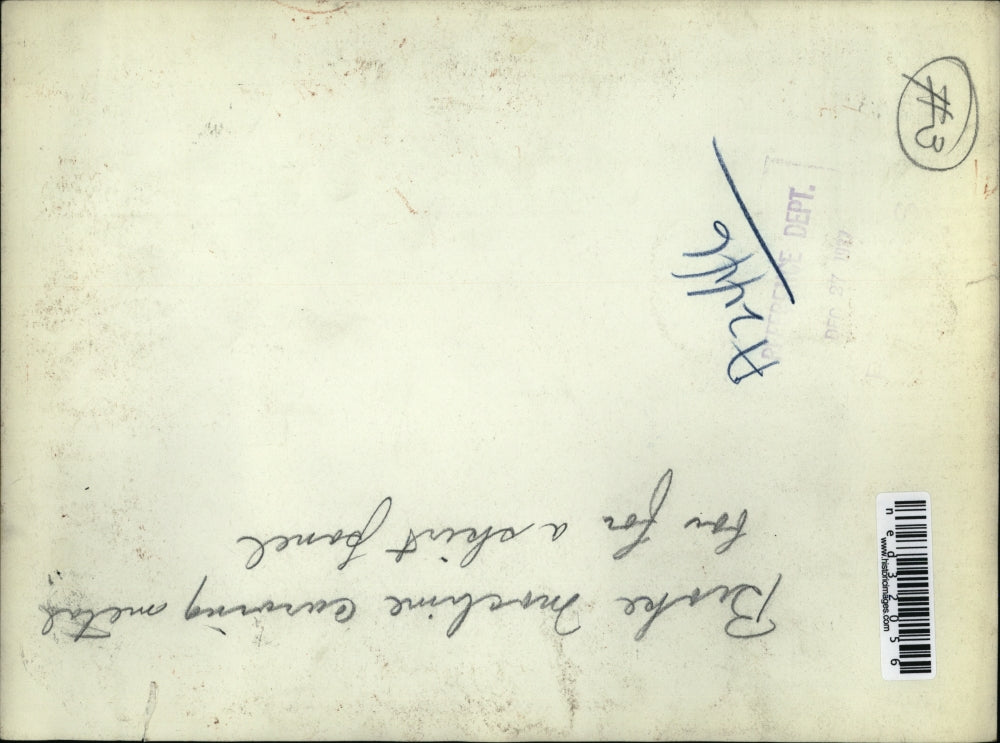 Brake machine curving metal
for for a skirt panel
A2446
REFERENCE DEPT.
DEC 27 1937
#3
ned32056
www.historicimages.com